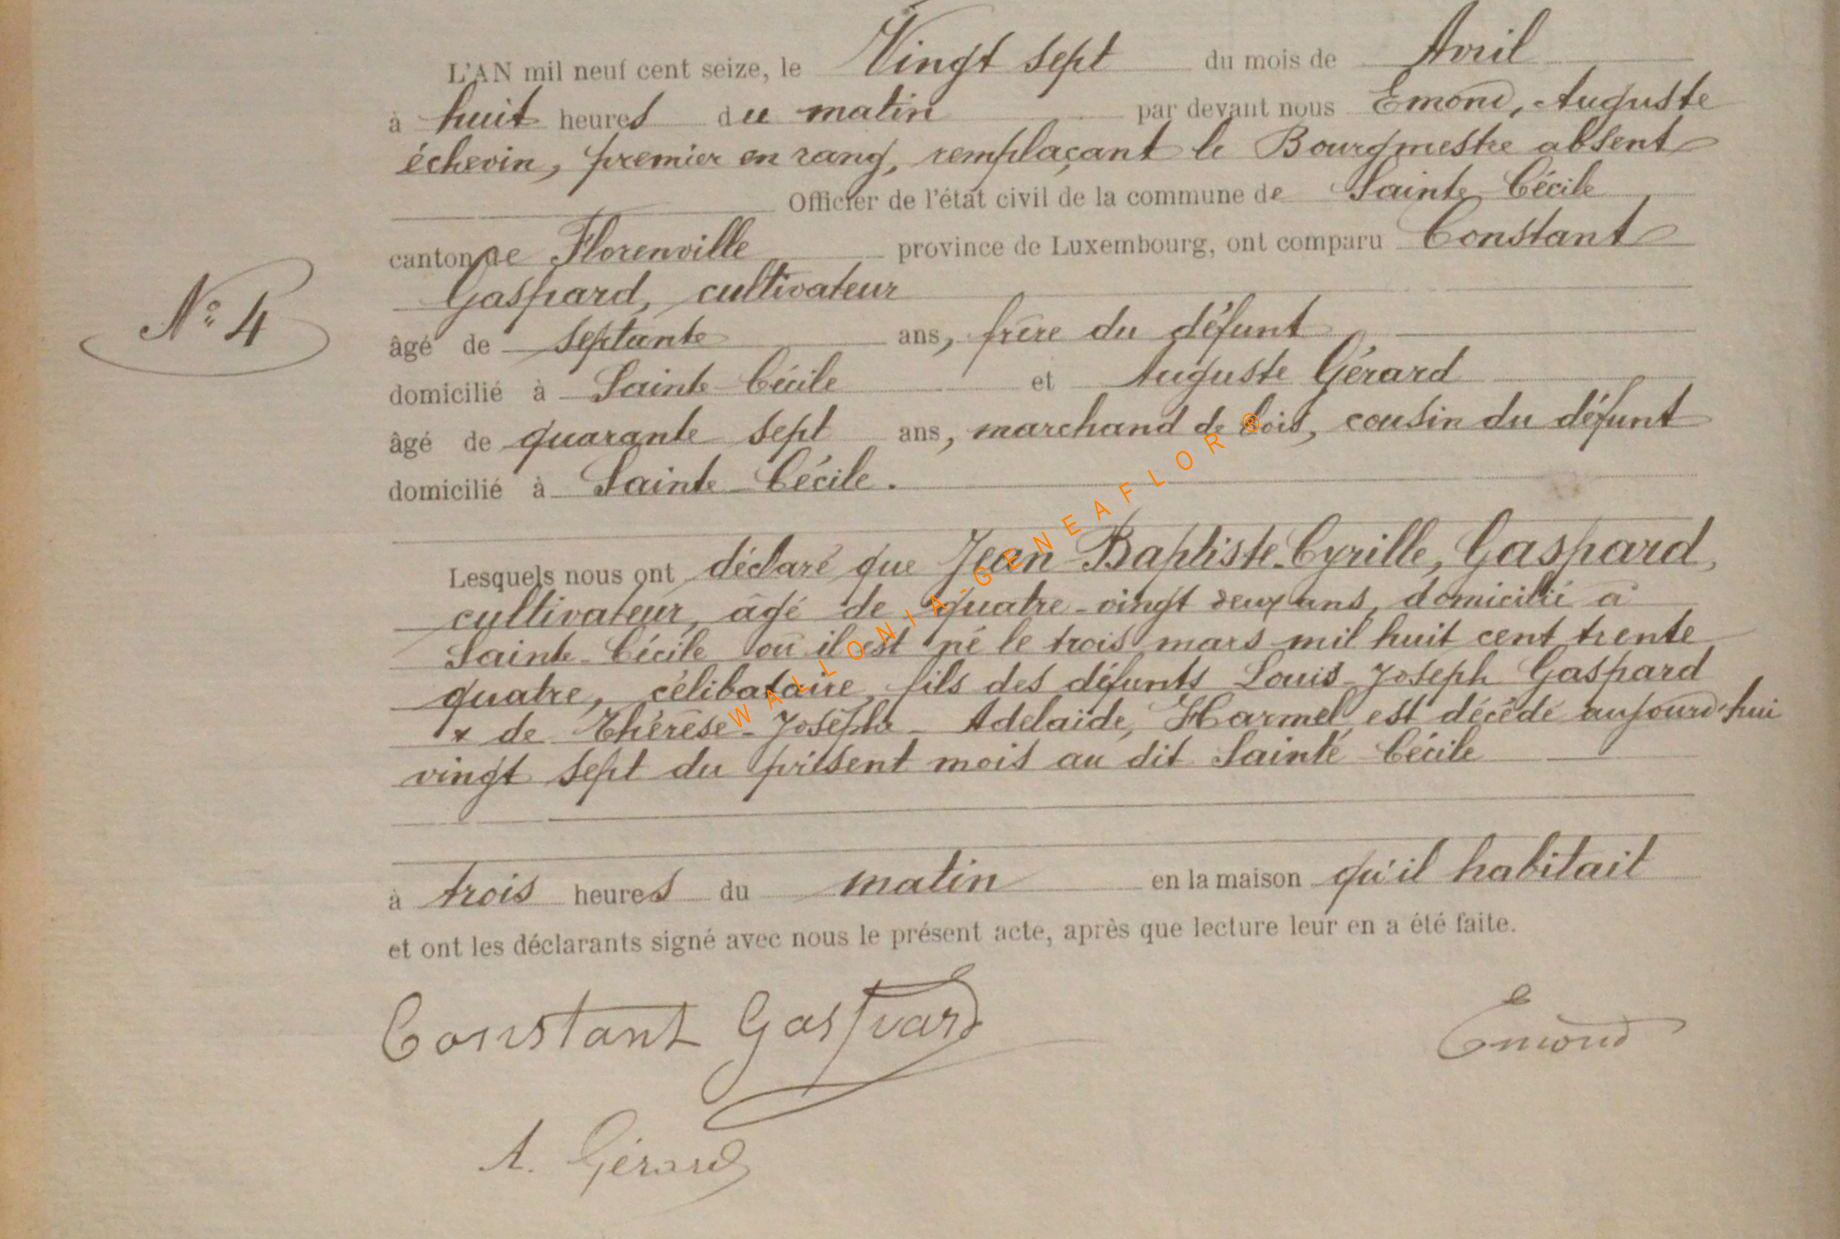 L'AN mil neuf cent seize, le Vingt sept du mois de Avril
à huit heures du matin par devant nous Emond, Auguste
échevin, premier en rang, remplaçant le Bourgmestre absent
Officier de l'état civil de la commune de Sainte Cécile
canton de Florenville province de Luxembourg, ont comparu Constant
Gaspard, cultivateur
N° 4
âgé de septante ans, frère du défunt
domicilié à Sainte Cécile et Auguste Gérard
âgé de quarante sept ans, marchand de bois, cousin du défunt
domicilié à Sainte-Cécile.
Lesquels nous ont déclaré que Jean-Baptiste-Cyrille, Gaspard,
cultivateur, âgé de quatre-vingt deux ans, domicilié à
Sainte-Cécile où il est né le trois mars mil huit cent trente
quatre, célibataire, fils des défunts Louis-Joseph Gaspard
& de Thérèse-Josèphe-Adelaïde, Harmel est décédé aujourd'hui
vingt sept du présent mois au dit Sainte Cécile
à trois heures du matin en la maison qu'il habitait
et ont les déclarants signé avec nous le présent acte, après que lecture leur en a été faite.
Constant Gaspard
Emond
A. Gérard
WALLONIA-GENEAFLOR©